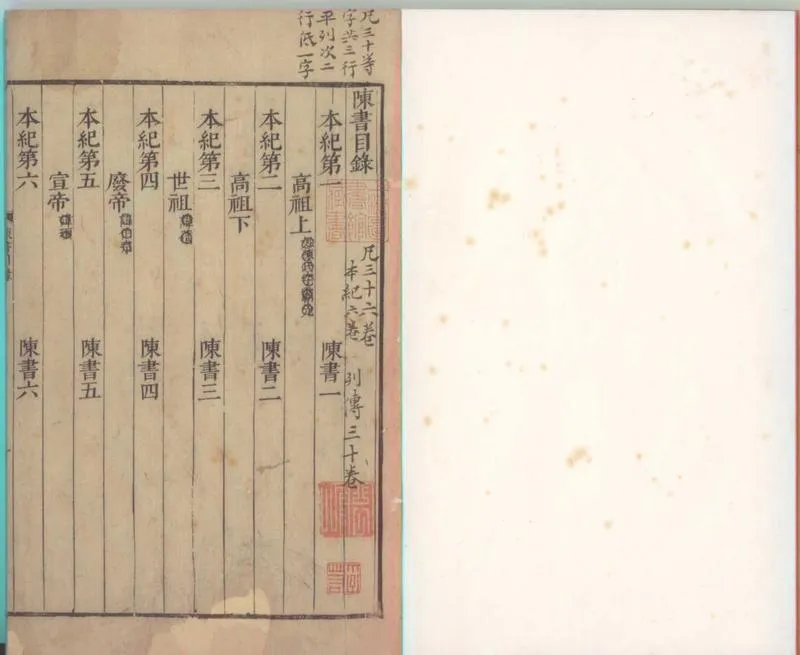 凡三十等
字共三行
平列次二
行低一字
陳書目錄
凡三十六卷
本紀六卷 列傳三十卷
本紀第一 陳書一
高祖上
本紀第二 陳書二
高祖下
本紀第三 陳書三
世祖
本紀第四 陳書四
廢帝
本紀第五 陳書五
宣帝
本紀第六 陳書六